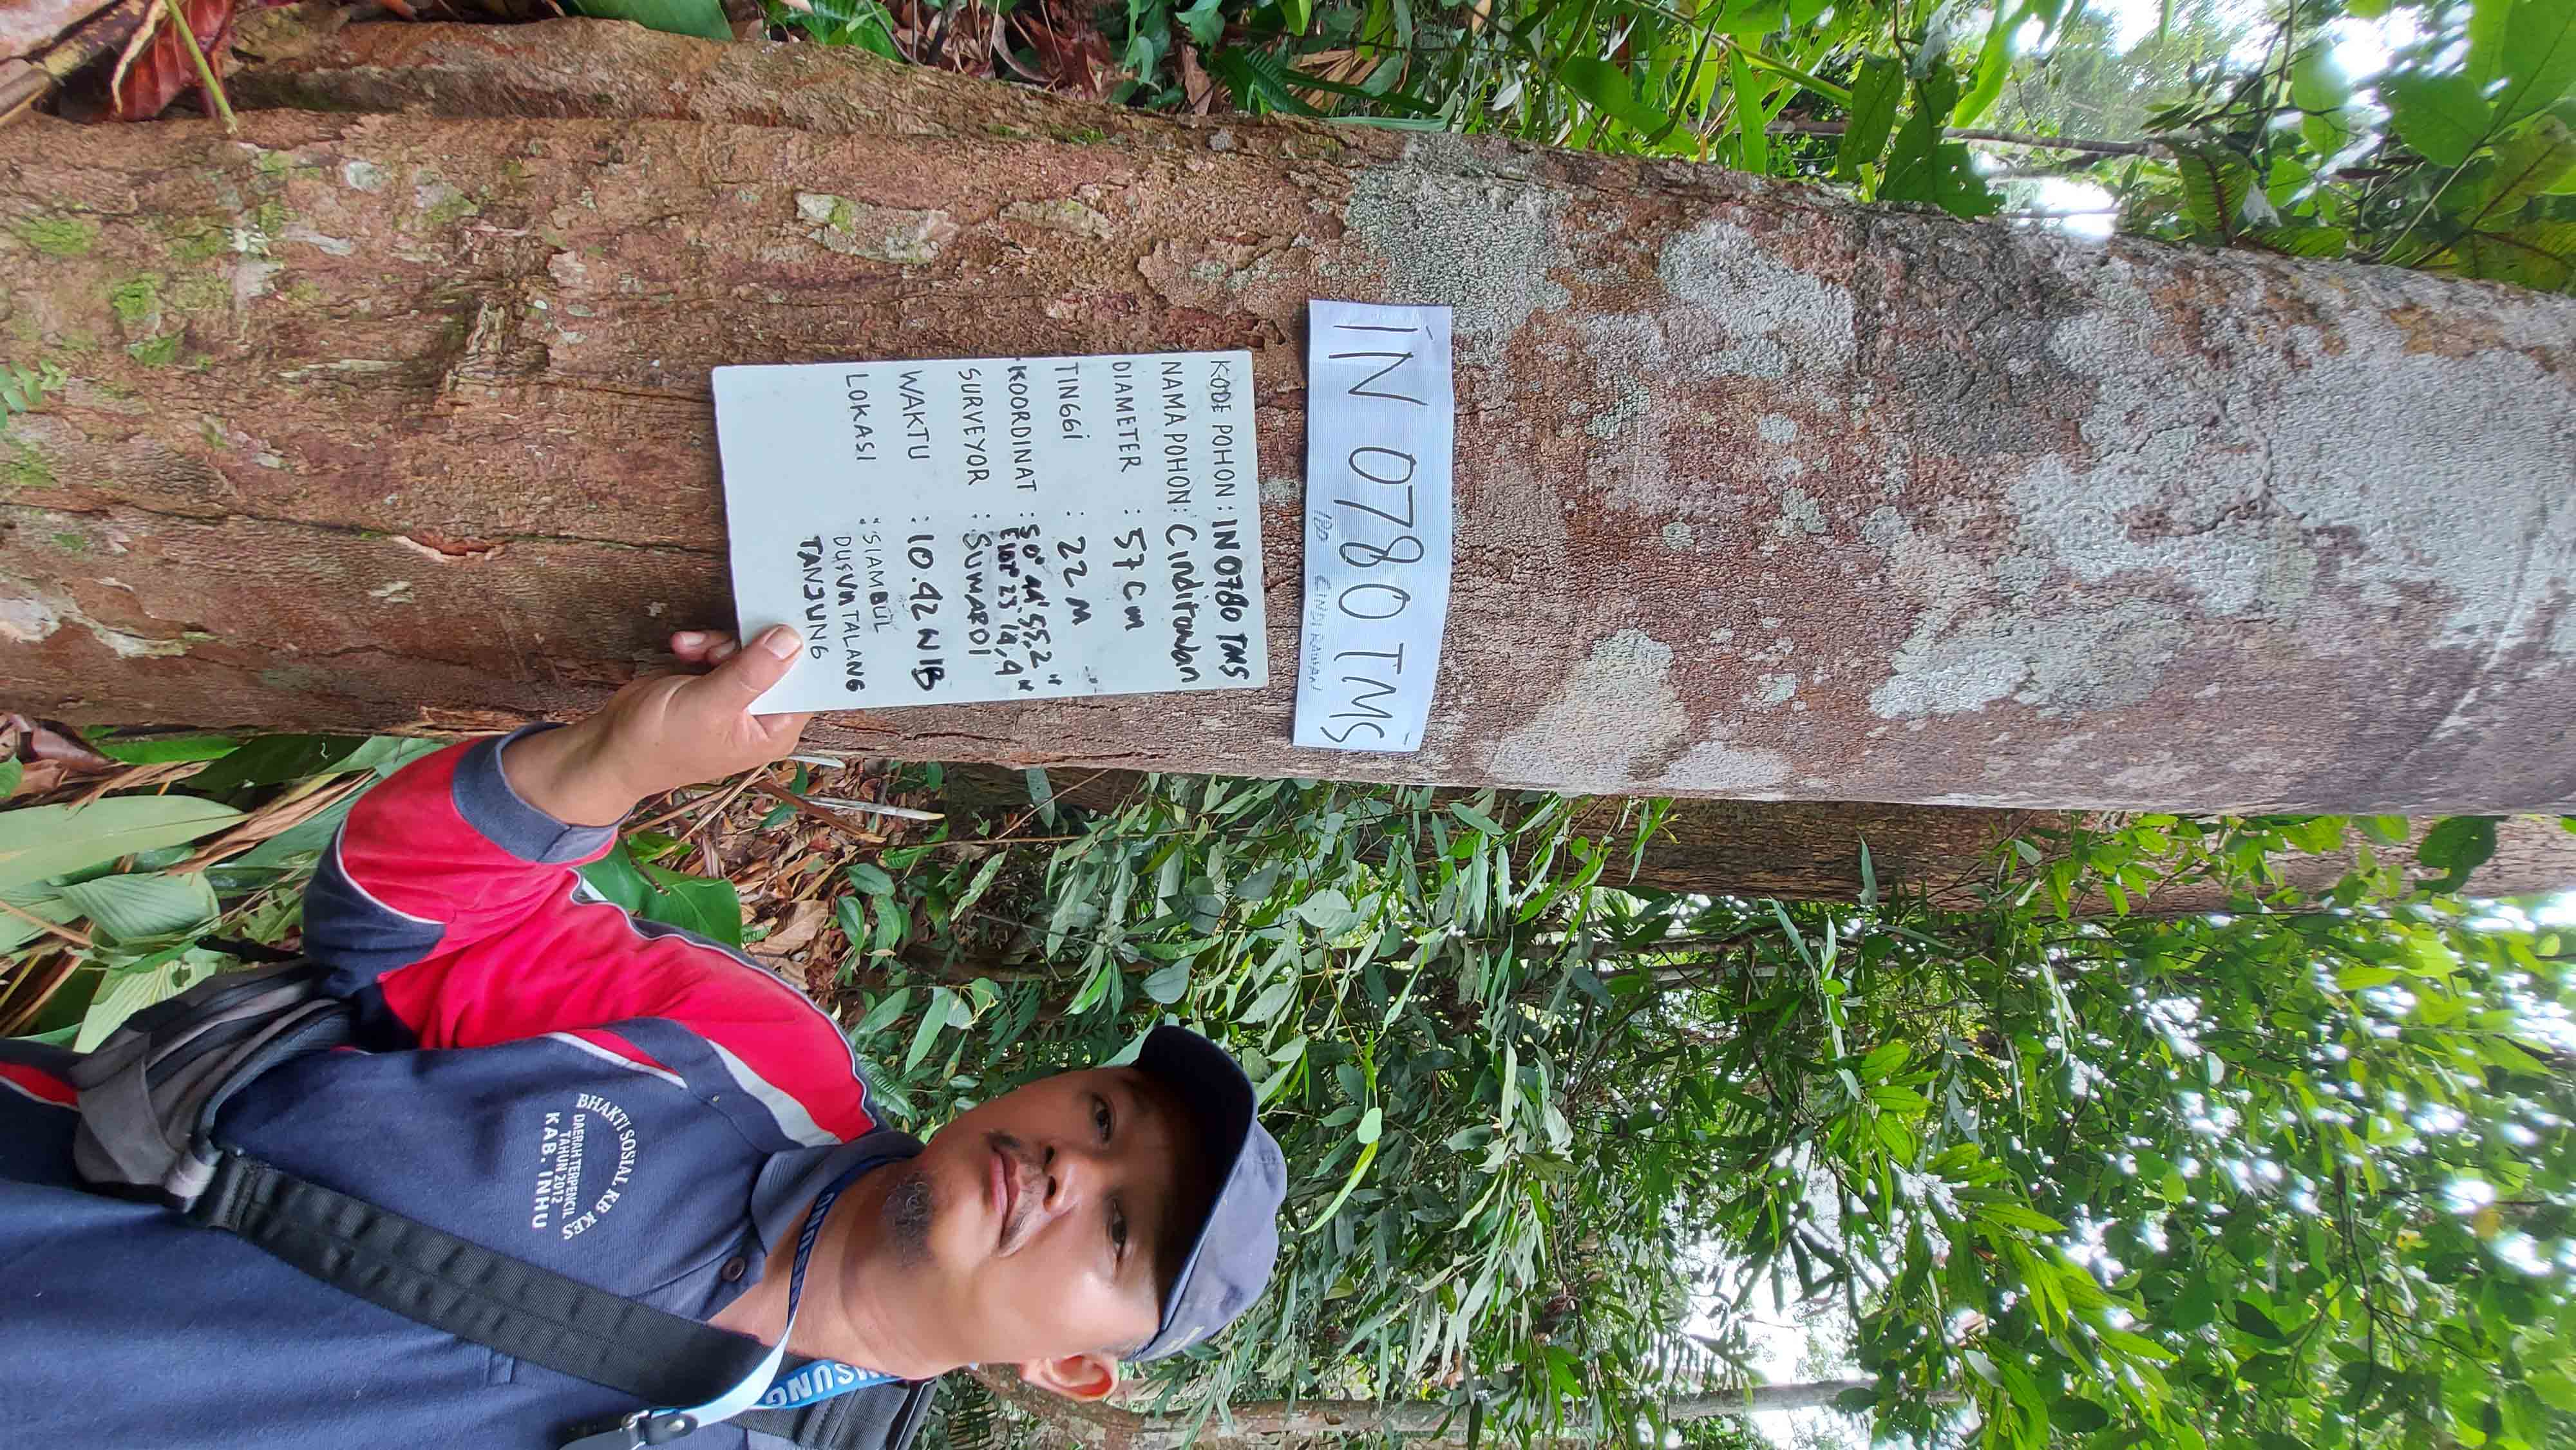 IN 0780 TMS
180 CINDIRAWAN
KODE POHON : IN 0780 TMS
NAMA POHON : Cindirawan
DIAMETER : 57 Cm
TINGGI : 22 M
KOORDINAT : S 0° 44' 55,2"
E 102° 23' 14,4"
SURVEYOR : SUMARDI
WAKTU : 10.42 WIB
LOKASI : SIAMBUL
DUSUN TALANG
TANJUNG
SUNG
BHAKTI SOSIAL KB KES
DAERAH TERPENCIL
TAHUN 2012
KAB. INHU